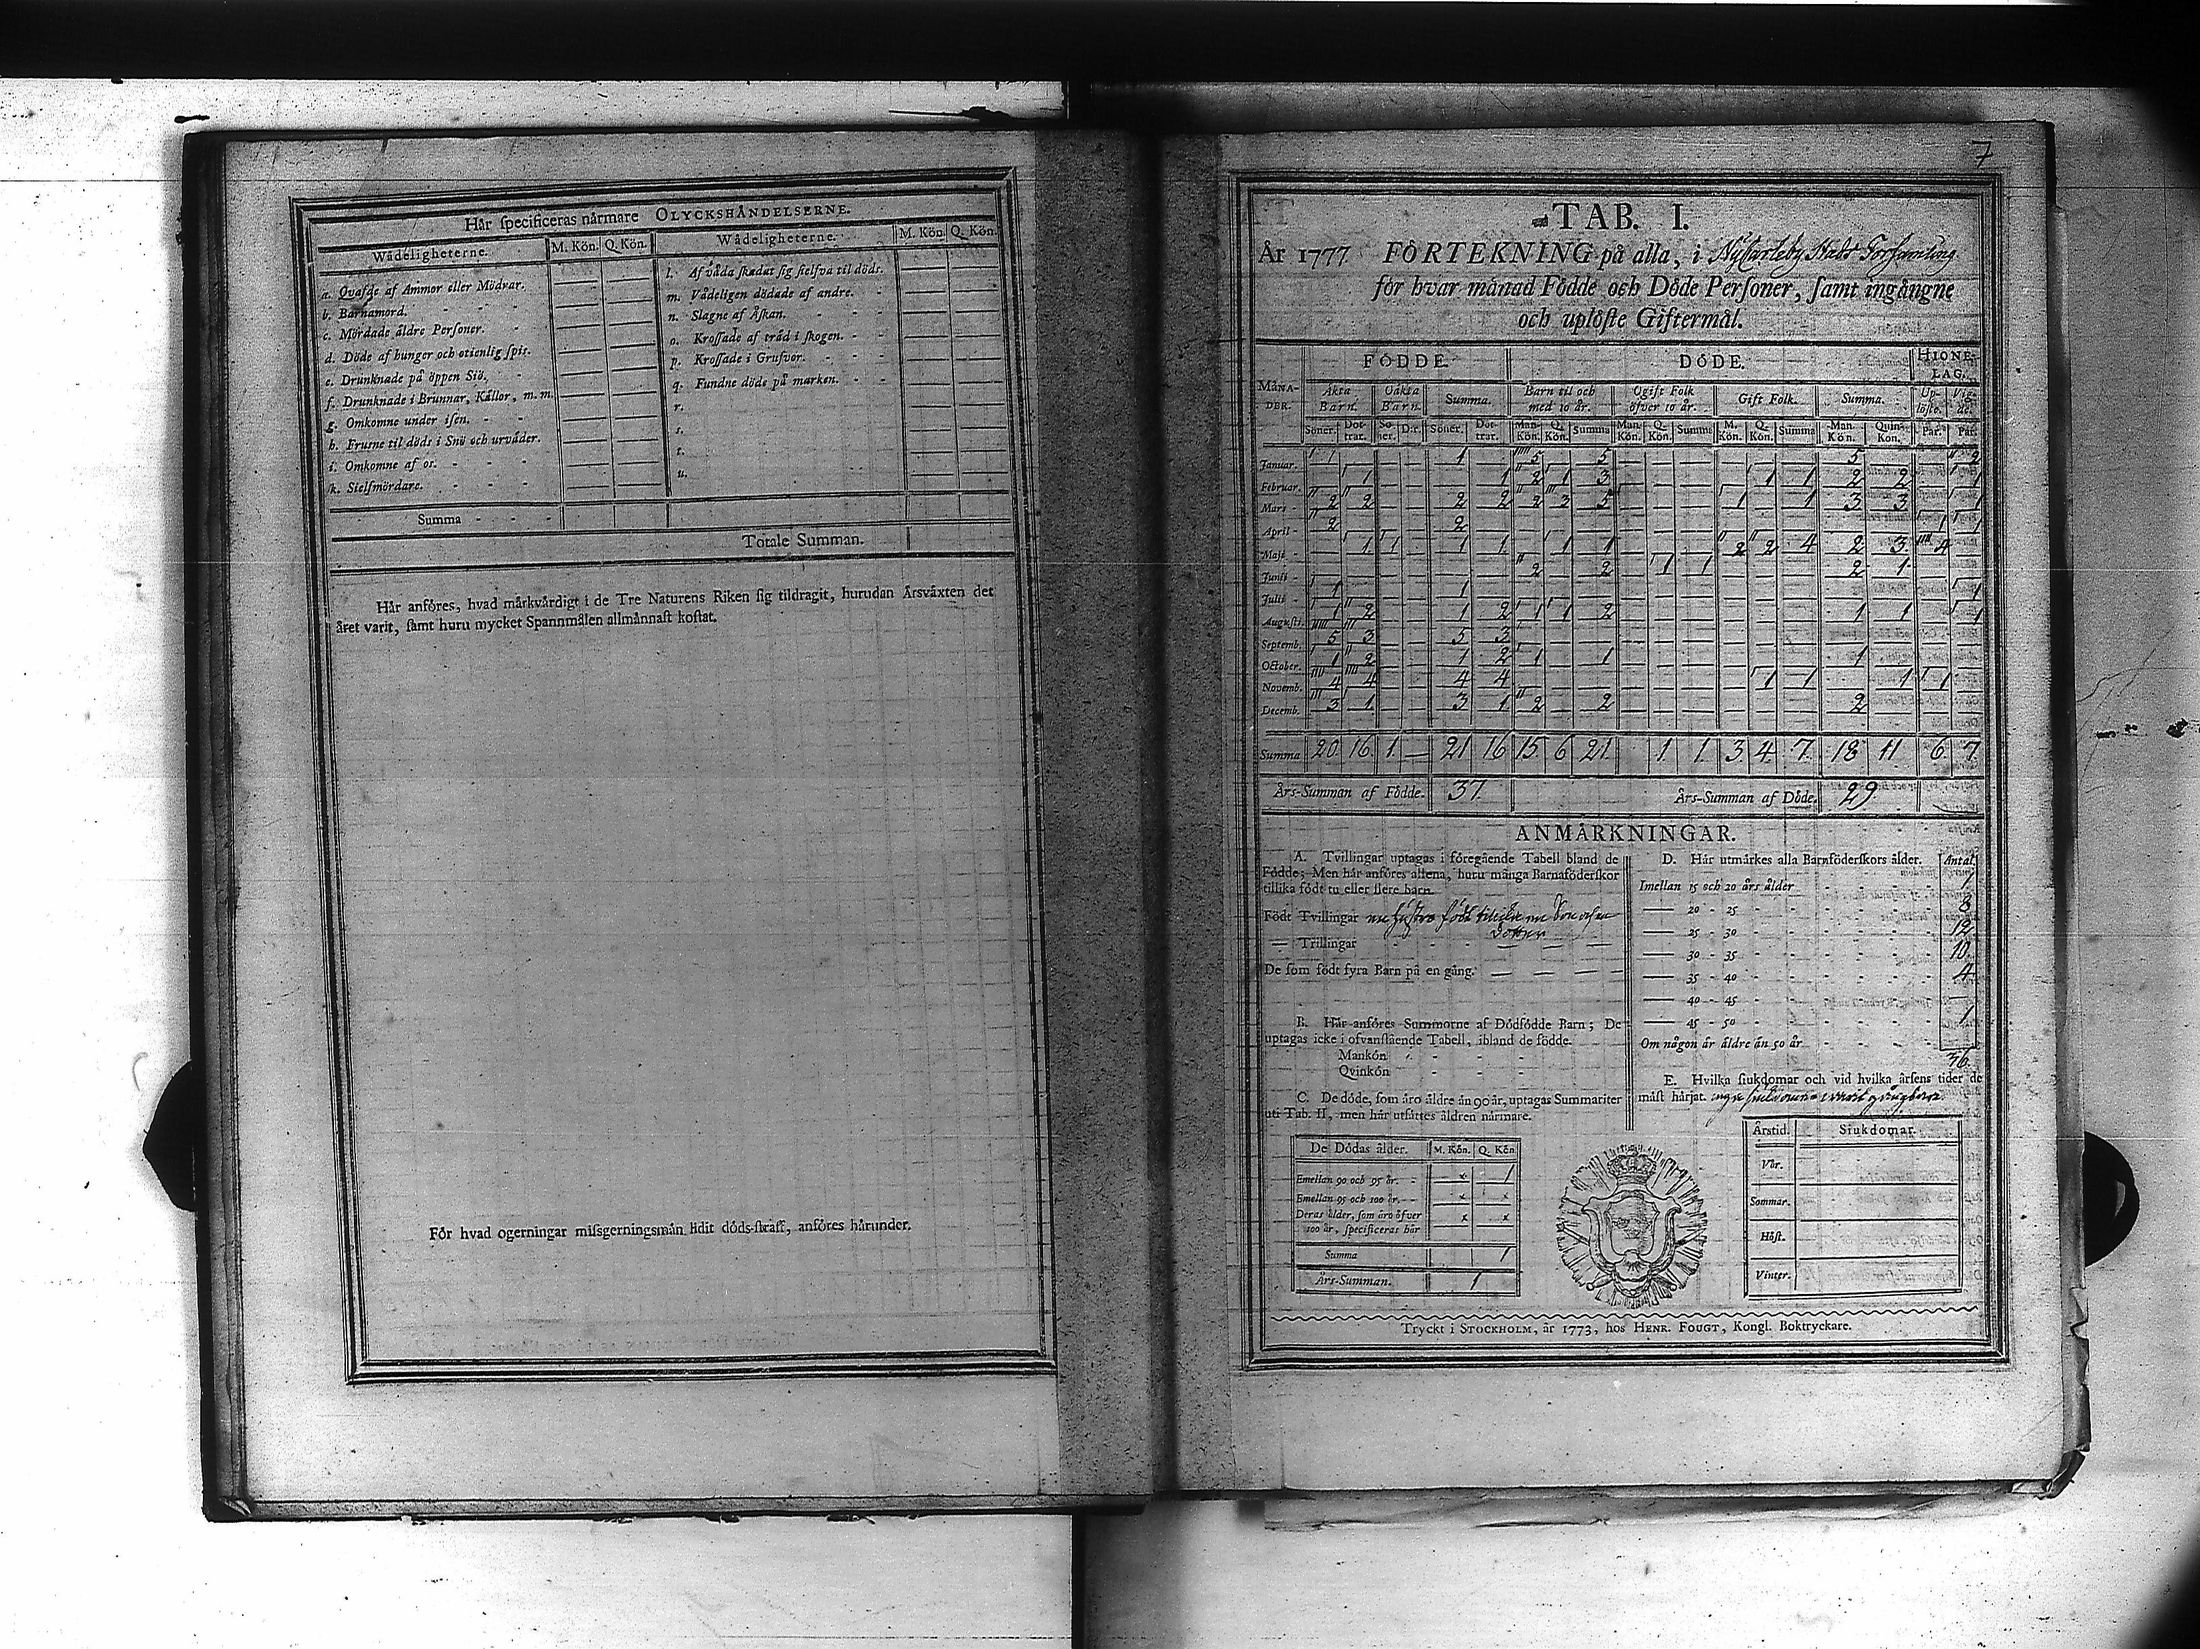 Hår ſpecificeras nårmare OLYCKSHÅNDELSERNE.
Wådeligheterne. M. Kön. Q. Kön.
a. Qvafde af Ammor eller Mödrar.
b. Barnamord.
c. Mördade äldre Perſoner.
d. Döde af hunger och otienlig ſpis.
e. Drunknade på öppen Siö.
f. Drunknade i Brunnar, Källor, m. m.
g. Omkomne under iſen.
h. Fruſne til döds i Snö och urväder.
i. Omkomne af os.
k. Sielfmördare.
Summa
Wådeligheterne. M. Kön. Q. Kön.
l. Af våda ſkadat ſig ſielfva til döds.
m. Vådeligen dödade af andre.
n. Slagne af Åſkan.
o. Kroſſade af träd i ſkogen.
p. Kroſſade i Grufvor.
q. Fundne döde på marken.
r.
s.
t.
u.
Totale Summan.
Hår anföres, hvad mårkvårdigt i de Tre Naturens Riken ſig tildragit, hurudan Årsvåxten det
året varit, ſamt huru mycket Spannmålen allmånnaſt koſtat.
För hvad ogerningar miſsgerningsmån lidit döds-ſtraff, anföres hårunder.
7
TAB. I.
År 1777 FÖRTEKNING på alla, i NyCarleby Stads Forsamling
för hvar månad Födde och Döde Perſoner, ſamt ingångne
och uplöſte Giftermål.
MÅNA-DER. FÖDDE. DÖDE. HIONE-LAG.
Äkta Barn. Oäkta Barn. Summa. Barn til och med 10 år. Ogift Folk öfver 10 år. Gift Folk. Summa. Up-löſte. Vig-de.
Söner. Döt-trar. Sö-ner. D:r. Söner. Döt-trar. Man-Kön. Q. Kön. Summa Man-Kön. Q. Kön. Summa M. Kön. Q. Kön. Summa Man-Kön. Quin-Kön. Par. Par.
Januar. 1 1 5 5 5 2
Februar. 1 1 2 1 3 1 1 2 2 1
Mars 2 2 2 2 2 3 5 1 1 3 3 1
April 2 2 1 1
Maji 1 1 1 1 1 1 2 2 4 2 3 4
Junii 2 2 1 1 2 1
Julii 1 1 1
Auguſti. 1 2 1 2 1 1 2 1 1 1
Septemb. 5 3 5 3
October. 1 2 1 2 1 1 1
Novemb. 4 4 4 4 1 1 1 1
Decemb. 3 1 3 1 2 2 2
Summa 20 16 1 — 21 16 15 6 21 1 1 3 4 7 18 11 6 7
Års-Summan af Födde. 37 Års-Summan af Döde. 29
ANMÅRKNINGAR.
A. Tvillingar uptagas i föregående Tabell bland de
Födde; Men hår anföres allena, huru många Barnaföderſkor
tillika födt tu eller flere barn.
Födt Tvillingar en hustro födt tillika en Son och en
Dotter
— Trillingar
De ſom födt fyra Barn på en gång.
B. Hår anföres Summorne af Dödfödde Barn; De
uptagas icke i ofvanſtående Tabell, ibland de födde.
Mankön
Qvinkön
C. De döde, ſom åro åldre ån 90 år, uptagas Summariter
uti Tab. II, men hår utſåttes åldren nårmare.
De Dödas ålder. M. Kön. Q. Kön
Emellan 90 och 95 år. x 1
Emellan 95 och 100 år. x x
Deras ålder, ſom äro öfver x x
100 år, ſpecificeras här
Summa 1
Års-Summan. 1
D. Hår utmårkes alla Barnföderſkors ålder. Antal
Imellan 15 och 20 års ålder 1
— 20 - 25 8
— 25 - 30 12
— 30 - 35 10
— 35 - 40 4
— 40 - 45 —
— 45 - 50 1
Om någon är äldre än 50 år
36
E. Hvilka ſiukdomar och vid hvilka årſens tider de
måſt hårjat. inga siukdomar warit gångbara
Årstid. Siukdomar.
Vår.
Sommar.
Höſt.
Vinter.
Tryckt i STOCKHOLM, år 1773, hos HENR. FOUGT, Kongl. Boktryckare.